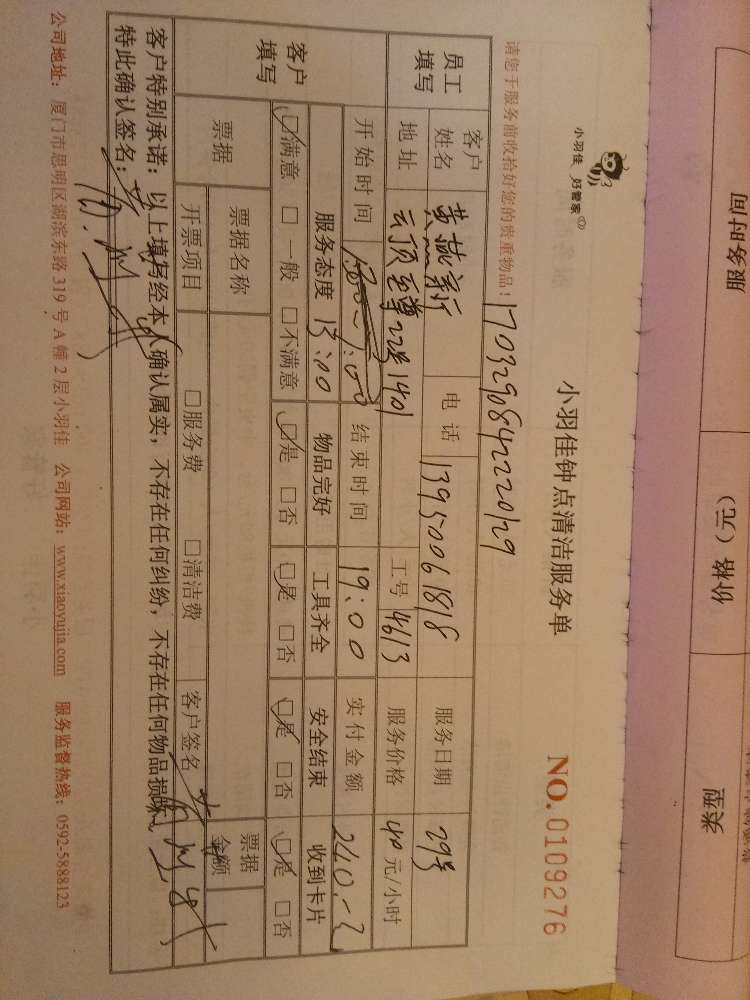 小羽佳 好管家
小羽佳钟点清洁服务单
NO.0109276
请您于服务前收拾好您的贵重物品!
1703290842220129
员工填写
客户姓名
电话 13950061818
服务日期 29号
地址 云顶至尊22号1401
工号 4613
服务价格 40元/小时
客户填写
开始时间 13:00
结束时间 19:00
实付金额 240
服务态度 物品完好 工具齐全 安全结束 收到卡片
☑满意 □一般 □不满意 ☑是 □否 ☑是 □否 ☑是 □否 ☑是 □否
票据
票据名称
票据金额
开票项目 □服务费 □清洁费 客户签名
客户特别承诺:以上填写经本人确认属实,不存在任何纠纷,不存在任何物品损坏,
特此确认签名:
公司地址:厦门市思明区湖滨东路319号A幢2层小羽佳 公司网站:www.xiaoyujia.com 服务监督热线:0592-5888123
服务时间
价格(元)
类型